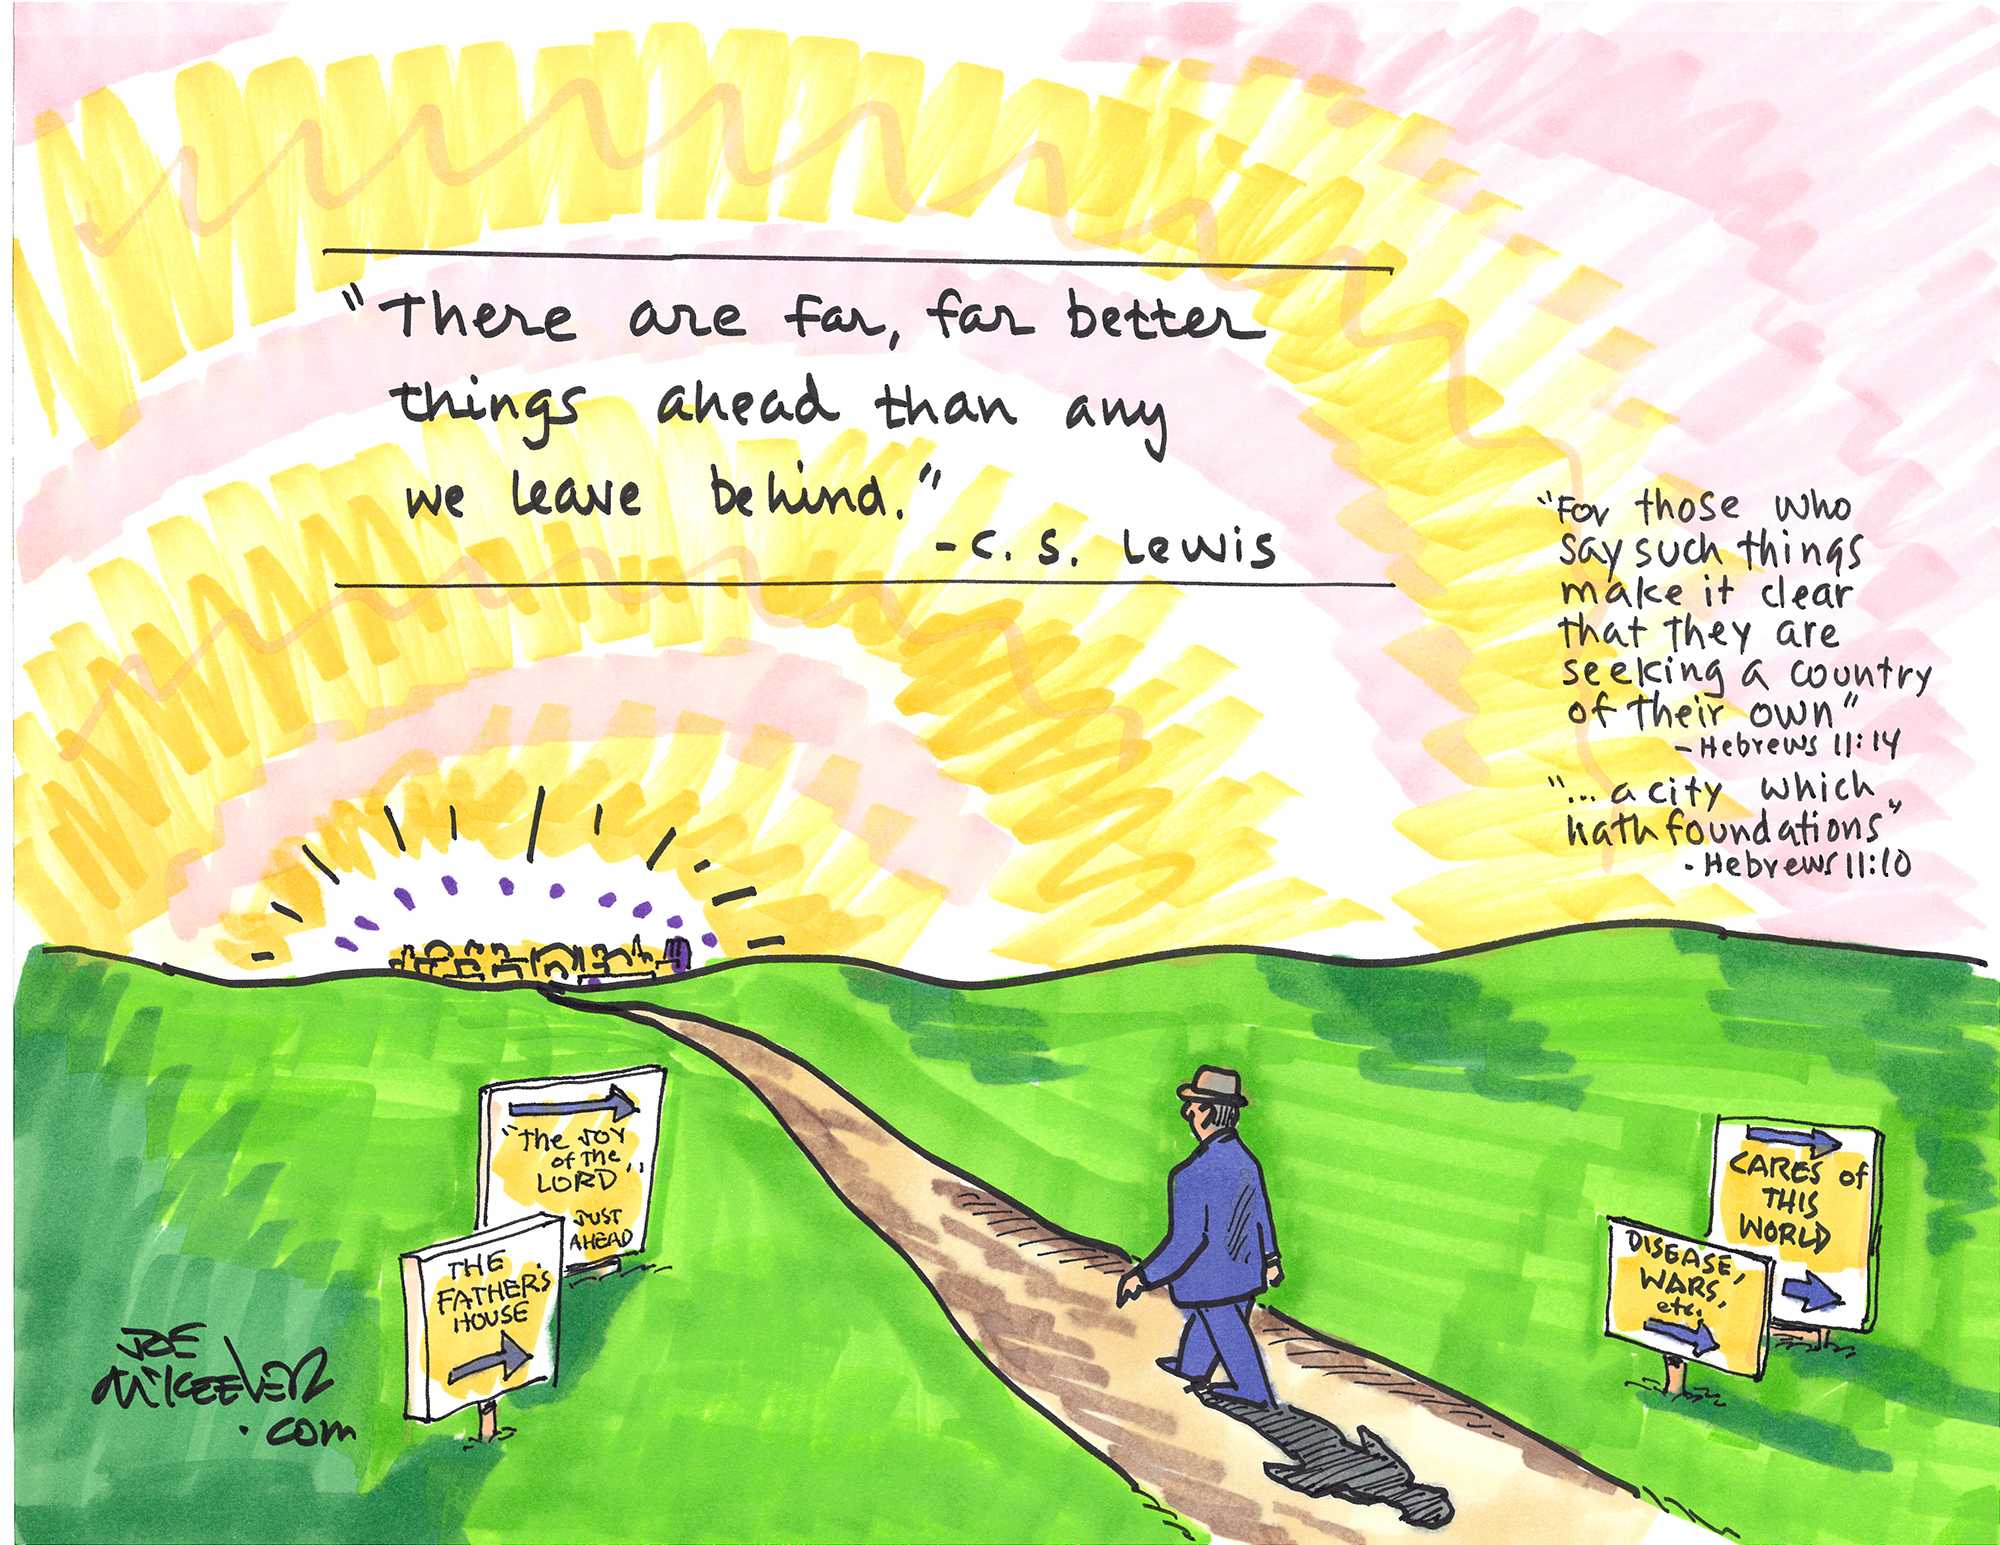 "There are far, far better
things ahead than any
we leave behind."
- C. S. Lewis
"For those who
say such things
make it clear
that they are
seeking a country
of their own"
- Hebrews 11:14
"... a city which
hath foundations"
- Hebrews 11:10
"The JOY
of the
LORD"
JUST
AHEAD
THE
FATHER'S
HOUSE
CARES of
THIS
WORLD
DISEASE,
WARS,
etc.
JOE
McKEEVER
.com